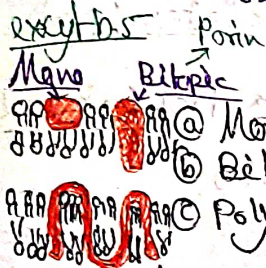 excyt b5 Porin
Mono Bitopic
(a) Mo
(b) Bi
(c) Poly